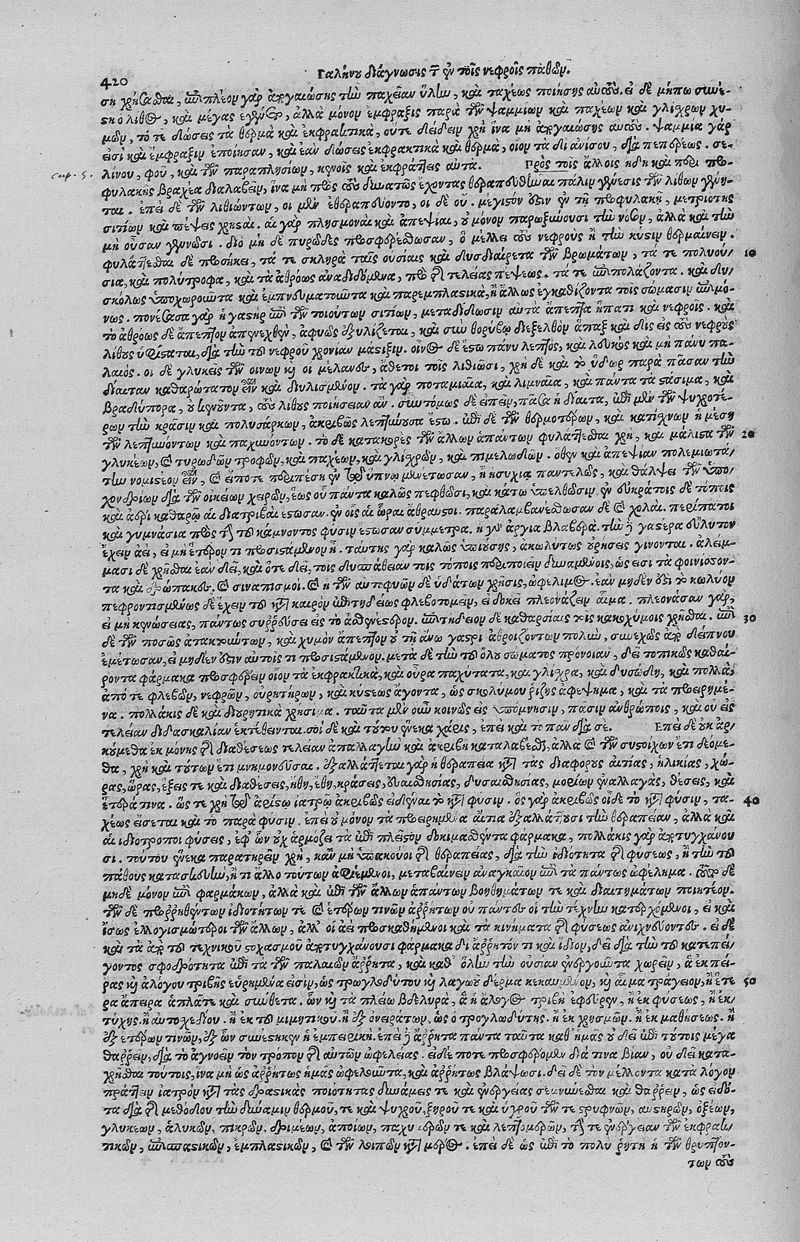 420 Γαλήνου διάγνωσις τῶν ἐν τοῖς νεφροῖς παθῶν.
ση χρῆσθαι, ἐπιπλέον γὰρ ἀραιώσης τὴν παχεῖαν ὕλην, καὶ ταχέως ποιήσης αὐτούς. εἰ δὲ μήπω συνέ-
στη ὁ λίθος, καὶ μέγας ἐγένετο, ἀλλὰ μόνον ἔμφραξις παρὰ τῶν ψαμμίων καὶ παχέων καὶ γλίσχρων χυ-
μῶν, τότε δώσεις τὰ θερμὰ καὶ ἐκφρακτικά, οὔτε δὲ χρὴ ἵνα μὴ ἀραιώσης αὐτούς. ψαμμία γάρ
εἰσι καὶ ἔμφραξιν ἐποίησαν, καὶ ἐὰν δώσεις ἐκφρακτικὰ καὶ θερμά, οἷον τὰ δι᾽ ἀνίσου, διὰ πεπέρεως. σε-
λίνου, φοῦ, καὶ τῶν παραπλησίων, κινοῖς καὶ ἐκφράξεις αὐτά. Πρὸς τοῖς ἄλλοις ἤδη καὶ περὶ προ-
cap. 5.
φυλακῆς βραχέα διαλαβεῖν, ἵνα μὴ πρὸς τοὺς δυνατῶς ἔχοντας θεραπευθῆναι πάλιν γένεσις τῶν λίθων γένη-
ται. ἐπεὶ δὲ τῶν λιθιώντων, οἱ μὲν ἐθεραπεύοντο, οἱ δὲ οὔ. μέγιστόν ἐστιν ἐν τῇ προφυλακῇ, μετριότης
σιτίων καὶ πέψεις χρησταί. αἱ γὰρ πλησμοναὶ καὶ ἀπεψίαι, οὐ μόνον παροξύνουσι τὴν νόσον, ἀλλὰ καὶ τὴν
μὴ οὖσαν γεννῶσι. διὸ μὴ δὲ πυρῶδες προσφερέσθωσαν, ὃ μέλλει τοὺς νεφροὺς ἢ τὴν κύστιν θερμαίνειν.
φυλάττεσθαι δὲ προσήκει, τά τε σκληρὰ ταῖς οὐσίαις καὶ δυσδιαίρετα τῶν βρωμάτων, τά τε πολυού- 10
σια, καὶ πολύτροφα, καὶ τὰ ἀθρόως ἀναδιδόμενα, πρὸ τῆς τελείας πέψεως. τά τε ἐπιπολάζοντα. καὶ δυ-
σκόλως ὑποχωροῦντα καὶ ἐμπνευματοῦντα καὶ παρεμπλαστικά, ἢ ἄλλως ἐγκαθίζοντα τοῖς σώμασιν ἐπιμό-
νως. πονέσασα γὰρ ἡ γαστὴρ ἐπὶ τῶν τοιούτων σιτίων, μεταδίδωσιν αὐτὰ ἄπεπτα ἥπατι καὶ νεφροῖς. καὶ
τὸ ἀθρόως δὲ ἄπεπτον ἀπενεχθέν, ἀφυῶς ἐξυλίζεται, καὶ σὺν θορύβῳ διεξελθὸν ἅπαξ καὶ δὶς εἰς τοὺς νεφροὺς
λίθος ὑφίσταται, διὰ τὴν τοῦ νεφροῦ χρονίαν μάστιξιν. οἶνος δὲ ἔστω πάνυ λεπτός, καὶ λευκὸς καὶ μὴ πάνυ πα-
λαιός. οἱ δὲ γλυκεῖς τῶν οἴνων καὶ οἱ μέλανες, ἄθετοι τοῖς λιθιῶσι, χρὴ δὲ καὶ τὸ ὕδωρ παρὰ πᾶσαν τὴν
δίαιταν καθαρώτατον εἶναι καὶ διυλισμένον. τὰ γὰρ ποταμιαῖα, καὶ λιμναῖα, καὶ πάντα τὰ στάσιμα, καὶ
βραδύπορα, τοὺς λίθους ποιήσειαν ἄν. συντόμως δὲ εἰπεῖν, πᾶσα ἡ δίαιτα, ἐπὶ μὲν τῶν ψυχροτέ-
ρων τὴν κρᾶσιν καὶ πολυσάρκων, ἀκριβῶς λεπτύνουσα ἔστω. ἐπὶ δὲ τῶν θερμοτέρων, καὶ κατίσχνων ἡ μέση
τῶν λεπτυνόντων καὶ παχυνόντων. τὸ δὲ κατακορὲς τῶν ἄλλων ἁπάντων φυλάττεσθαι χρή, καὶ μάλιστα τῶν 20
γλυκέων, καὶ τυρωδῶν τροφῶν, καὶ παχέων, καὶ γλίσχρων, καὶ πιμελωδῶν. ὅθεν καὶ ἀπεψίαν πολεμιωτά-
την νομιστέον εἶναι, καὶ εἴποτε περιπέσῃ ἐν τῷ ὕπνῳ μενέτωσαν, ἡσυχίᾳ παντελῶς, καὶ θάλψει τῶν ὑπο-
χονδρίων διὰ τῶν οἰκείων χειρῶν, ἕως οὗ πάντα καλῶς πεφθῶσι, καὶ κάτω ὑπέλθωσιν ἐν εὐκράτοις δὲ τόποις
καὶ ἀέρι καθαρῷ αἱ διατριβαὶ ἔστωσαν. ἐν οἷς αἱ ὧραι ἄθραυστοι. παραλαμβανέσθωσαν δὲ καὶ σχολαὶ. περίπατοι
καὶ γυμνάσια πρὸς τὴν τοῦ κάμνοντος φύσιν ἔστωσαν σύμμετρα. ἡ γὰρ ἀργία βλαβερά. τὴν δὲ γαστέρα εὔλυτον
ἔχειν ἀεί, εἰ μὴ ἕτερόν τι προσιστάμενον ᾖ. ταύτης γὰρ καλῶς ὑπιούσης, ἀκωλύτως οὐρήσεις γίνονται. ἀλείμ-
μασι δὲ χρῆσθαι ἐὰν δέῃ, καὶ ὅτε δέῃ, τοῖς δυσπάθειαν τοῖς τόποις περιποιεῖν δυναμένοις, ὥς εἰσι τὰ φοινίσσον-
τα καὶ δρώπακες. καὶ σιναπισμοί. καὶ ἡ τῶν αὐτοφυῶν δὲ ὑδάτων χρῆσις, ὠφέλιμος. ἐὰν μηδὲν ᾖ τὸ κωλῦον
πεφροντισμένως δὲ ἔχειν τοῦ κατὰ καιρὸν ἐπιτηδείως φλεβοτομεῖν, εἰ δοκεῖ πλεονάζειν αἷμα. πλεονάσαν γάρ,
εἰ μὴ κενώσειας, πάντως συρρεύσει εἰς τὸ ἀσθενέστερον. ἐπιτήδειον δὲ καθαρσίοις τοῖς κακοχύμοις χρῆσθαι. ἐπὶ 30
δὲ τῶν ποσῶς ἀτακτούντων, καὶ χυμὸν ἄπεπτον ἐν τῇ ἄνω γαστρὶ ἀθροιζόντων πολύν, συνεχῶς ἀπὸ δείπνου
ἐμέτωσαν, εἰ μηδέν ἐστιν αὐτοῖς τι προσιστάμενον. μετὰ δὲ τὴν τοῦ ὅλου σώματος πρόνοιαν, δεῖ τοπικῶς καθαί-
ροντα φάρμακα προσφέρειν οἷον τὰ ἐκφρακτικά, καὶ οὖρα παχύτατα, καὶ γλίσχρα, καὶ δυσώδη, καὶ πολλά,
ἀπό τε φλεβῶν, νεφρῶν, οὐρητήρων, καὶ κύστεως ἄγοντα, ὡς σκολύμου ῥίζης ἀφέψημα, καὶ τὰ προειρημέ-
να. πολλάκις δὲ καὶ διουρητικὰ χρήσιμα. ταῦτα μὲν οὖν κοινῶς εἰς ὑπόμνησιν, πᾶσιν ἀνθρώποις, καὶ οὐ εἰς
τελείαν διδασκαλίαν ἐκτίθενται. σοὶ δὲ καὶ τούτου ἕνεκα χάρις, ἐπεὶ καὶ τὸ πᾶν διὰ σέ. Ἐπεὶ δὲ οὐκ ἀρ-
κούμεθα ἐκ μόνης τῆς διαθέσεως τελείαν ἀπαλλαγὴν καὶ ἀκριβῆ καταλαβεῖν, ἀλλὰ καὶ τῶν συστοίχων ἔτι δεόμε-
θα, χρὴ καὶ τούτων ἔτι μνημονεῦσαι. ἐξαλλάττεται γὰρ ἡ θεραπεία κατὰ τὰς διαφόρους αἰτίας, ἡλικίας, χώ-
ρας, ὥρας, ἕξεις τε καὶ διαθέσεις, ἤθη, ἔθη, κράσεις, εὐαισθησίας, δυσαισθησίας, μορίων ἐναλλαγάς, θέσεις, καὶ
ἕτερά τινα. ὥς τε χρὴ τῷ ἀρίστῳ ἰατρῷ ἀκριβῶς εἰδέναι τὸ κατὰ φύσιν. ὃς γὰρ ἀκριβῶς οἶδε τὸ κατὰ φύσιν, τα- 40
χέως εἴσεται καὶ τὸ παρὰ φύσιν. ἐπεὶ οὐ μόνον τὰ προειρημένα αἴτια ἐξαλλάττουσι τὴν θεραπείαν, ἀλλὰ καὶ
αἱ ἰδιότροποι φύσεις, ἐφ᾽ ὧν οὐχ ἁρμόζει τὰ ἐπὶ πλεῖστον δοκιμασθέντα φάρμακα, πολλάκις γὰρ ἀποτυγχάνου
σι. τούτου ἕνεκα παρατηρεῖν χρή, κἂν μὴ ὑπακούοι τῆς θεραπείας, διὰ τὴν ἰδιότητα τῆς φύσεως, ἢ τὴν τοῦ
πάθους κατασκευήν, ἤ τι ἄλλο τούτων ἀφιέμενοι, μεταβαίνειν ἀναγκαῖον ἐπὶ τὰ πάντως ὠφέλημα. τοῦτο δὲ
μηδὲ μόνον ἐπὶ φαρμάκων, ἀλλὰ καὶ ἐπὶ τῶν ἄλλων ἁπάντων βοηθημάτων τε καὶ διαιτημάτων ποιητέον.
τῶν δὲ προρρηθέντων ἰδιοτήτων τε καὶ ἑτέρων τινῶν ἀρρήτων οὐ πάντες οἱ τὴν τέχνην κατερχόμενοι, εἰ καὶ
ἴσως ἐλλογιμώτεροι τῶν ἄλλων, ἀλλ᾽ οἱ ἀεὶ προσκαθήμενοι καὶ τὰ κινήματα τῆς φύσεως ἀνιχνεύοντες. εἰ δὲ
καὶ τὰ ἀπὸ τοῦ τεχνικοῦ στοχασμοῦ ἀποτυγχάνουσι φάρμακα δι᾽ ἄρρητόν τι καὶ ἴδιον, δεῖ διὰ τὴν τοῦ κατεπεί-
γοντος σφοδρότητα ἐπὶ τὰ τῶν παλαιῶν ἄρρητα, καὶ καθ᾽ ὅλην τὴν οὐσίαν ἐνεργοῦντα χωρεῖν, ἃ ἐκ πεί-
ρας καὶ ἀλόγου τριβῆς εὑρημένα εἰσίν, ὡς τρωγλοδύτου καὶ λαγωοῦ δέρμα κεκαυμένον, καὶ αἷμα τράγειον, ἢ ἕτε 50
ρα ἄπειρα ἁπλᾶ τε καὶ σύνθετα. ὧν καὶ τὰ πλείω βδελυρά, ἃ ἡ ἄλογος τριβὴ ἐφεῦρεν, ἢ ἐκ φύσεως, ἢ ἐκ
τύχης. ἢ αὐτοσχεδίου. ἢ ἐκ τοῦ μιμητικοῦ. ἢ ἐξ ὀνειράτων, ὡς ὁ τρωγλοδύτης. ἢ ἐκ χρησμῶν. ἢ ἐκ μαθήσεως. ἢ
ἐξ ἑτέρων τινῶν, ἐξ ὧν συνέστηκεν ἡ ἐμπειρική. ἐπεὶ δὲ ἄρρητα πάντα ταῦτα καθ᾽ ἡμᾶς οὐ δεῖ ἐπὶ τούτοις μέγα
θαρρεῖν, διὰ τὸ ἀγνοεῖν τὸν τρόπον τῆς αὐτῶν ὠφελείας. εἰ δέ ποτε προσφέρομεν διά τινα βίαν, οὐ δεῖ κατα-
χρῆσθαι τούτοις, ἵνα μὴ ὡς ἀρρήτως ἡμᾶς ὠφελοῦντα, καὶ ἀρρήτως βλάψωσι. δεῖ δὲ τὸν μέλλοντα κατὰ λόγον
πράττειν ἰατρὸν κατὰ τὰς δραστικὰς ποιότητας δυνάμεις τε καὶ ἐνεργείας σεμνύνεσθαι καὶ θαρρεῖν, ὡς εἰδό-
τα διὰ τῆς μεθόδου τὴν δύναμιν θερμοῦ, τε καὶ ψυχροῦ, ξηροῦ τε καὶ ὑγροῦ τῶν τε στρυφνῶν, αὐστηρῶν, ὀξέων,
γλυκέων, ἁλυκῶν, πικρῶν, δριμέων, ἀποίων, παχυμερῶν τε καὶ λεπτομερῶν, τήν τε ἐνέργειαν τῶν ἐκφρακ-
τικῶν, ἐπισπαστικῶν, ἐμπλαστικῶν, καὶ τῶν λοιπῶν κατὰ μέρος. ἐπεὶ δὲ ὡς ἐπὶ τὸ πολὺ ῥητὴ ἡ τῶν θρυπτόν-
των τοὺς